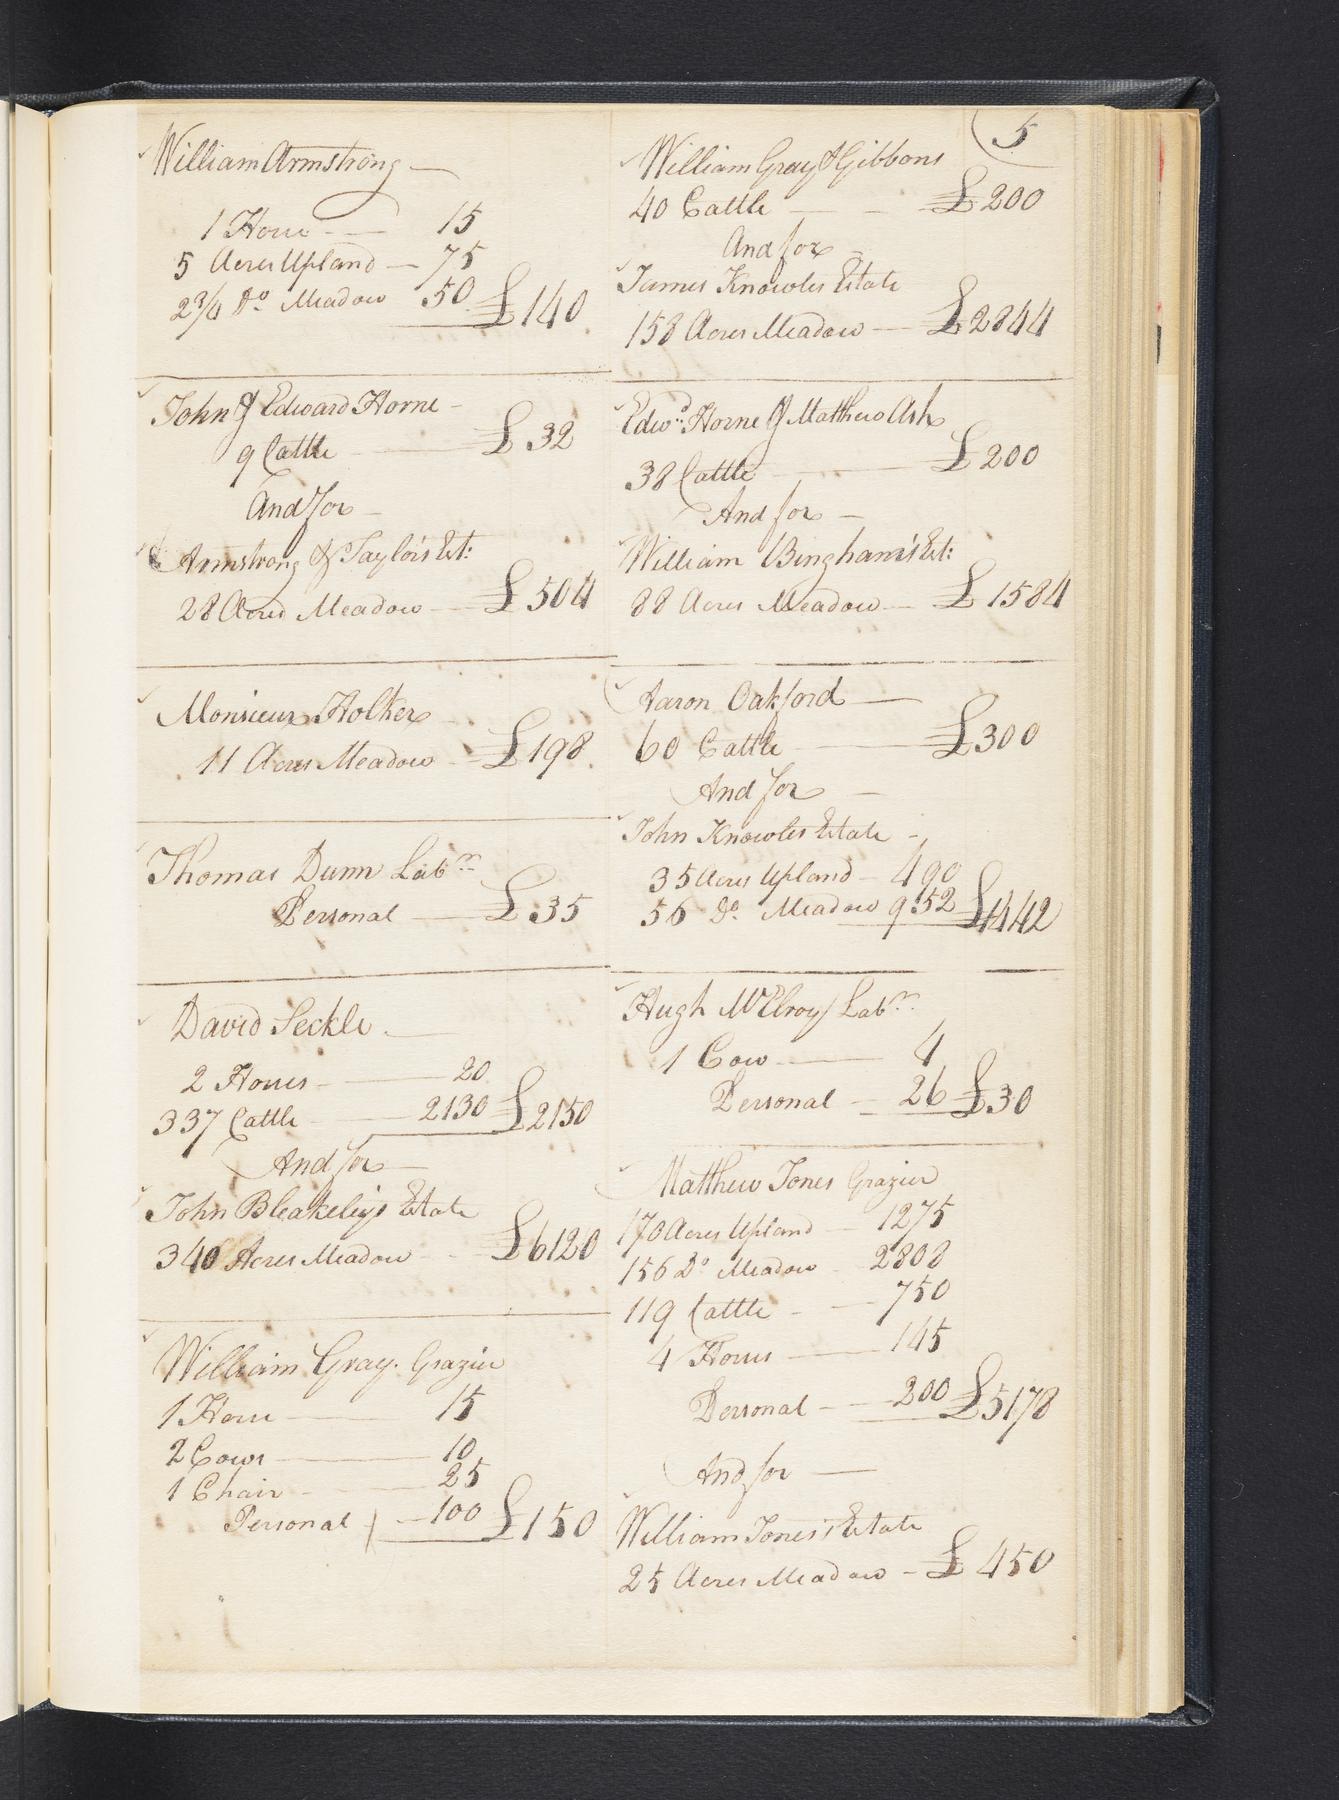 5
William Armstrong —
1 Horse — 15
5 Acres Upland — 75
2 3/4 Do. Meadow 50 £140
John & Edward Horne —
9 Cattle — £32
And for —
Armstrong & Taylor's Est:
28 Acres Meadow — £504
Monsieur Holker
11 Acres Meadow — £198
Thomas Dunn Labrr
Personal — £35
David Seckle —
2 Horses — 20
337 Cattle — 2130 £2150
And for —
John Bleakeley's Estate
340 Acres Meadow — £6120
William Gray. Grazier
1 Horse — 15
2 Cows — 10
1 Chair — 25
Personal — 100 £150
William Gray & Gibbons
40 Cattle — £200
And for —
James Knowles Estate
158 Acres Meadow — £2844
Edwd. Horne & Matthew Ash
38 Cattle — £200
And for —
William Bingham's Est:
88 Acres Meadow — £1584
Aaron Oakford —
60 Cattle — £300
And for —
John Knowles Estate —
35 Acres Upland — 490
56 Do. Meadow 952 £1442
Hugh McElroy Labrr
1 Cow — 4
Personal — 26 £30
Matthew Jones Grazier
170 Acres Upland — 1275
156 Do Meadow — 2808
119 Cattle — 750
4 Horses — 145
Personal — 200 £5178
And for —
William Jones's Estate
25 Acres Meadow — £450